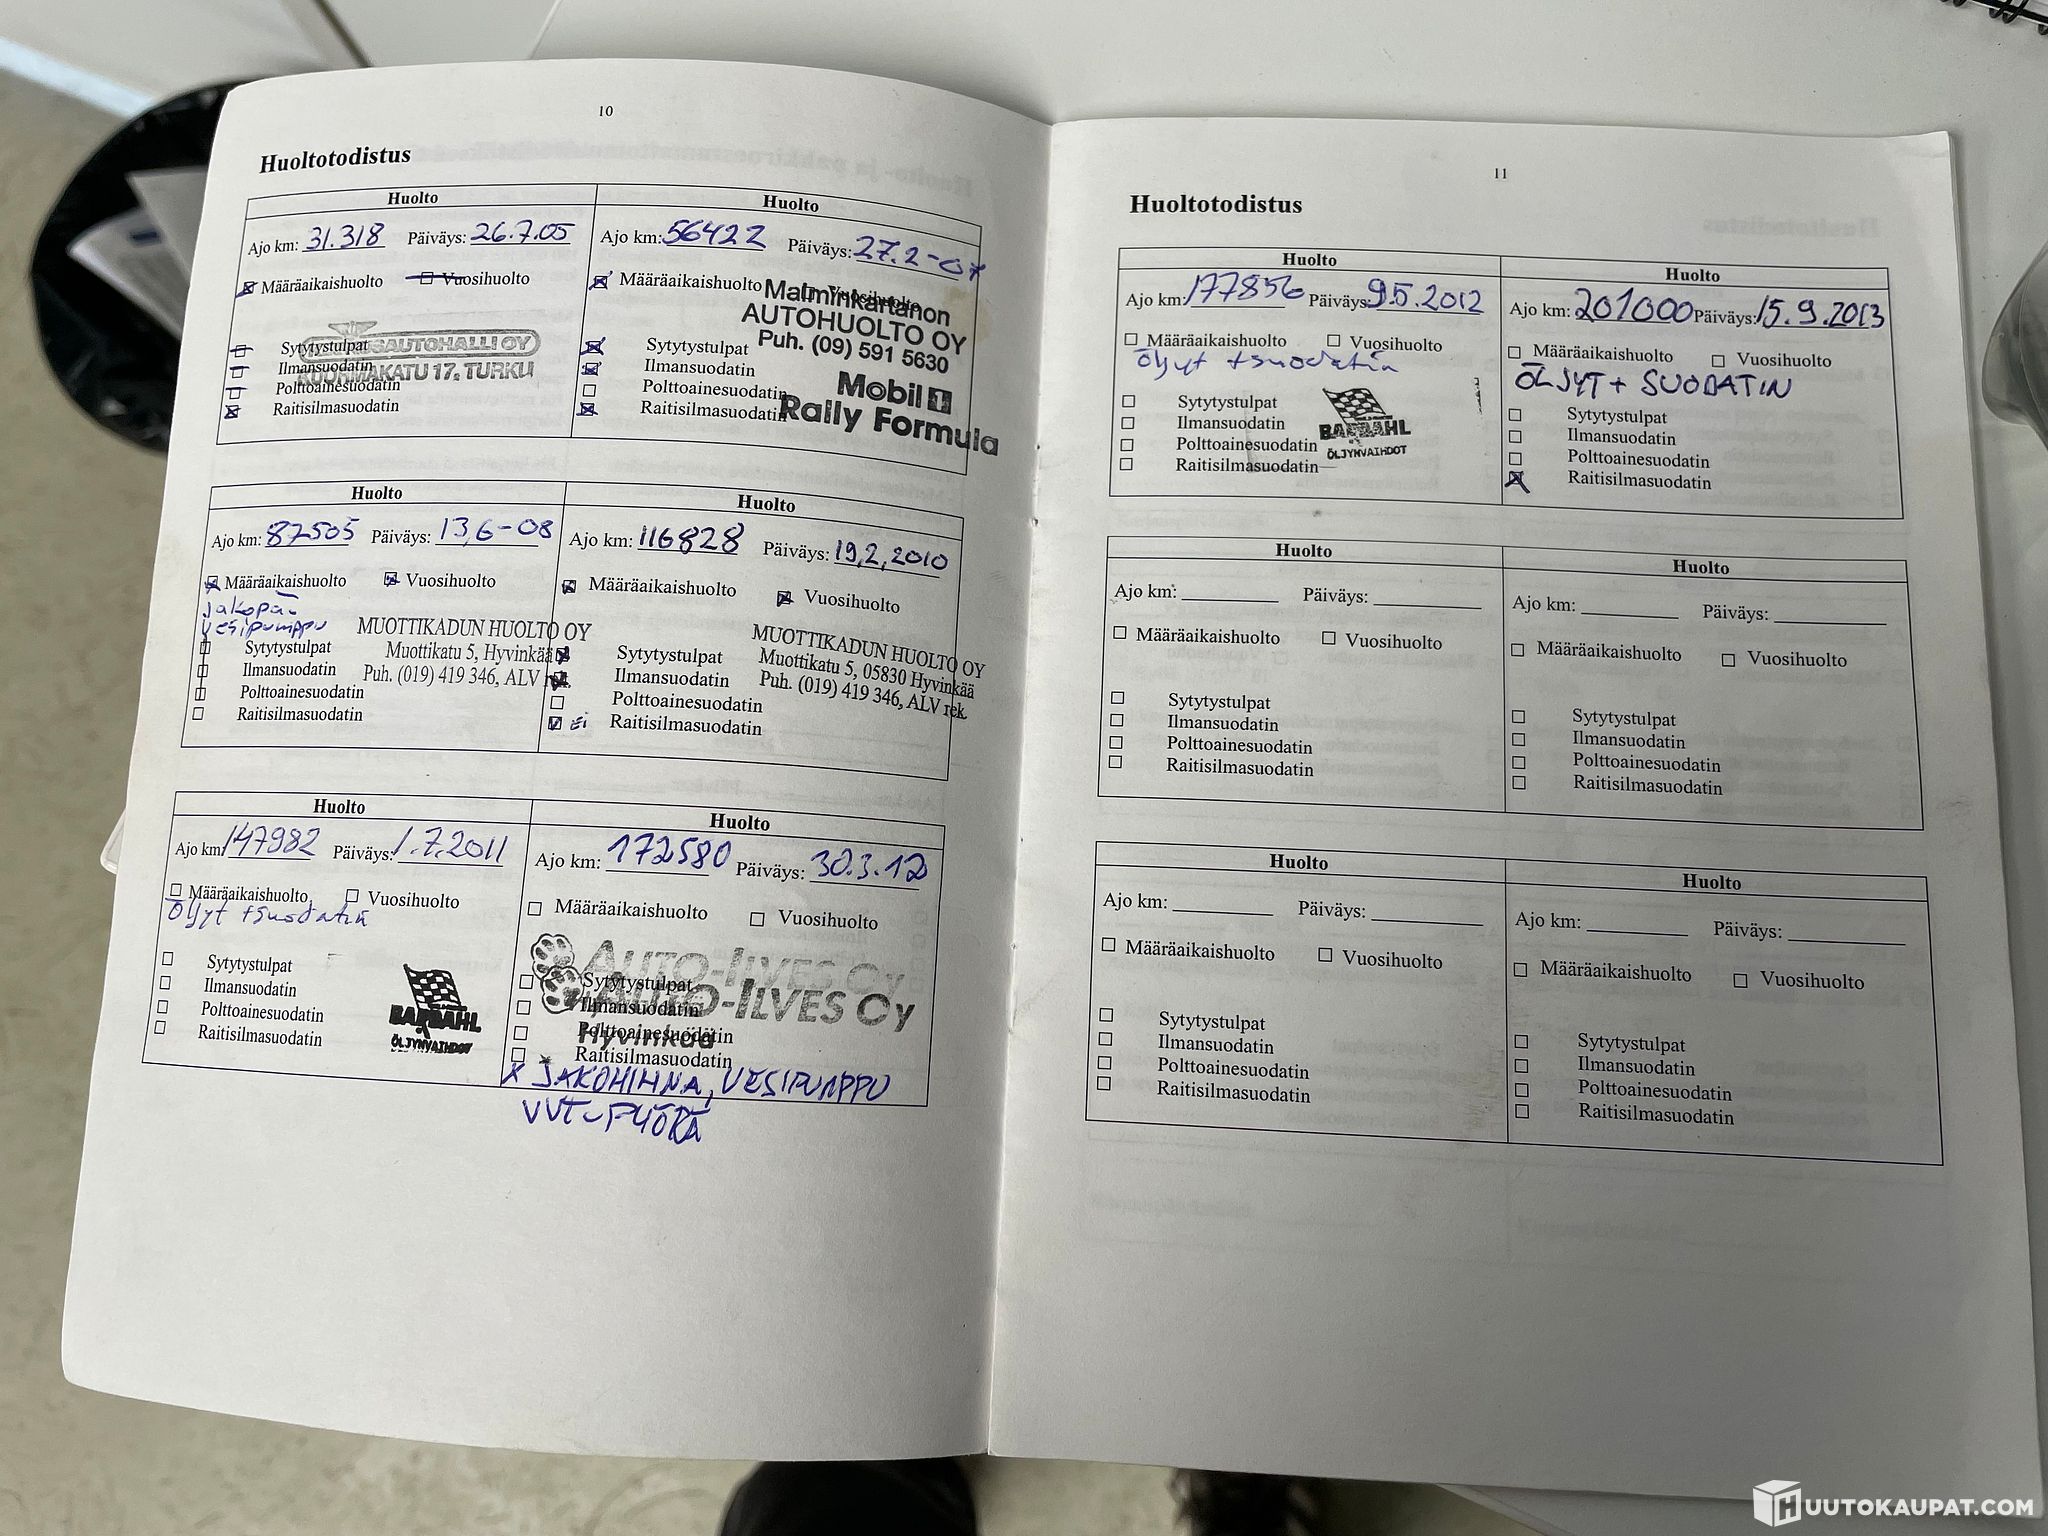 10
Huoltotodistus
Huolto
Ajo km: 31.318 Päiväys: 26.7.05
Määräaikaishuolto Vuosihuolto
Sytytystulpat
Ilmansuodatin
Polttoainesuodatin
Raitisilmasuodatin
AUTOHALLI OY
KUORMAKATU 17, TURKU
Huolto
Ajo km: 56422 Päiväys: 27.2-07
Määräaikaishuolto Vuosihuolto
Malminkartanon
AUTOHUOLTO OY
Puh. (09) 591 5630
Mobil 1
Rally Formula
Sytytystulpat
Ilmansuodatin
Polttoainesuodatin
Raitisilmasuodatin
Huolto
Ajo km: 87505 Päiväys: 13,6-08
Määräaikaishuolto Vuosihuolto
jakopää
vesipumppu
MUOTTIKADUN HUOLTO OY
Muottikatu 5, Hyvinkää
Puh. (019) 419 346, ALV rek.
Sytytystulpat
Ilmansuodatin
Polttoainesuodatin
Raitisilmasuodatin
Huolto
Ajo km: 116828 Päiväys: 19,2,2010
Määräaikaishuolto Vuosihuolto
MUOTTIKADUN HUOLTO OY
Muottikatu 5, 05830 Hyvinkää
Puh. (019) 419 346, ALV rek.
Sytytystulpat
Ilmansuodatin
Polttoainesuodatin
Ei Raitisilmasuodatin
Huolto
Ajo km 147982 Päiväys: 1.7.2011
Määräaikaishuolto Vuosihuolto
Öljyt + suodatin
Sytytystulpat
Ilmansuodatin
Polttoainesuodatin
Raitisilmasuodatin
BARDAHL
ÖLJYNVAIHDOT
Huolto
Ajo km: 172580 Päiväys: 30.3.12
Määräaikaishuolto Vuosihuolto
AUTO-ILVES OY
AUTO-ILVES OY
Hyvinkää
Sytytystulpat
Ilmansuodatin
Polttoainesuodatin
Raitisilmasuodatin
X JAKOHIHNA, VESIPUMPPU
VVT-PYÖRÄ
11
Huoltotodistus
Huolto
Ajo km: 177856 Päiväys: 9.5.2012
Määräaikaishuolto Vuosihuolto
Öljyt + suodatin
Sytytystulpat
Ilmansuodatin
Polttoainesuodatin
Raitisilmasuodatin
BARDAHL
ÖLJYNVAIHDOT
Huolto
Ajo km: 201000 Päiväys: 15.9.2013
Määräaikaishuolto Vuosihuolto
ÖLJYT + SUODATIN
Sytytystulpat
Ilmansuodatin
Polttoainesuodatin
Raitisilmasuodatin
Huolto
Ajo km: Päiväys:
Määräaikaishuolto Vuosihuolto
Sytytystulpat
Ilmansuodatin
Polttoainesuodatin
Raitisilmasuodatin
Huolto
Ajo km: Päiväys:
Määräaikaishuolto Vuosihuolto
Sytytystulpat
Ilmansuodatin
Polttoainesuodatin
Raitisilmasuodatin
Huolto
Ajo km: Päiväys:
Määräaikaishuolto Vuosihuolto
Sytytystulpat
Ilmansuodatin
Polttoainesuodatin
Raitisilmasuodatin
Huolto
Ajo km: Päiväys:
Määräaikaishuolto Vuosihuolto
Sytytystulpat
Ilmansuodatin
Polttoainesuodatin
Raitisilmasuodatin
HUUTOKAUPAT.COM